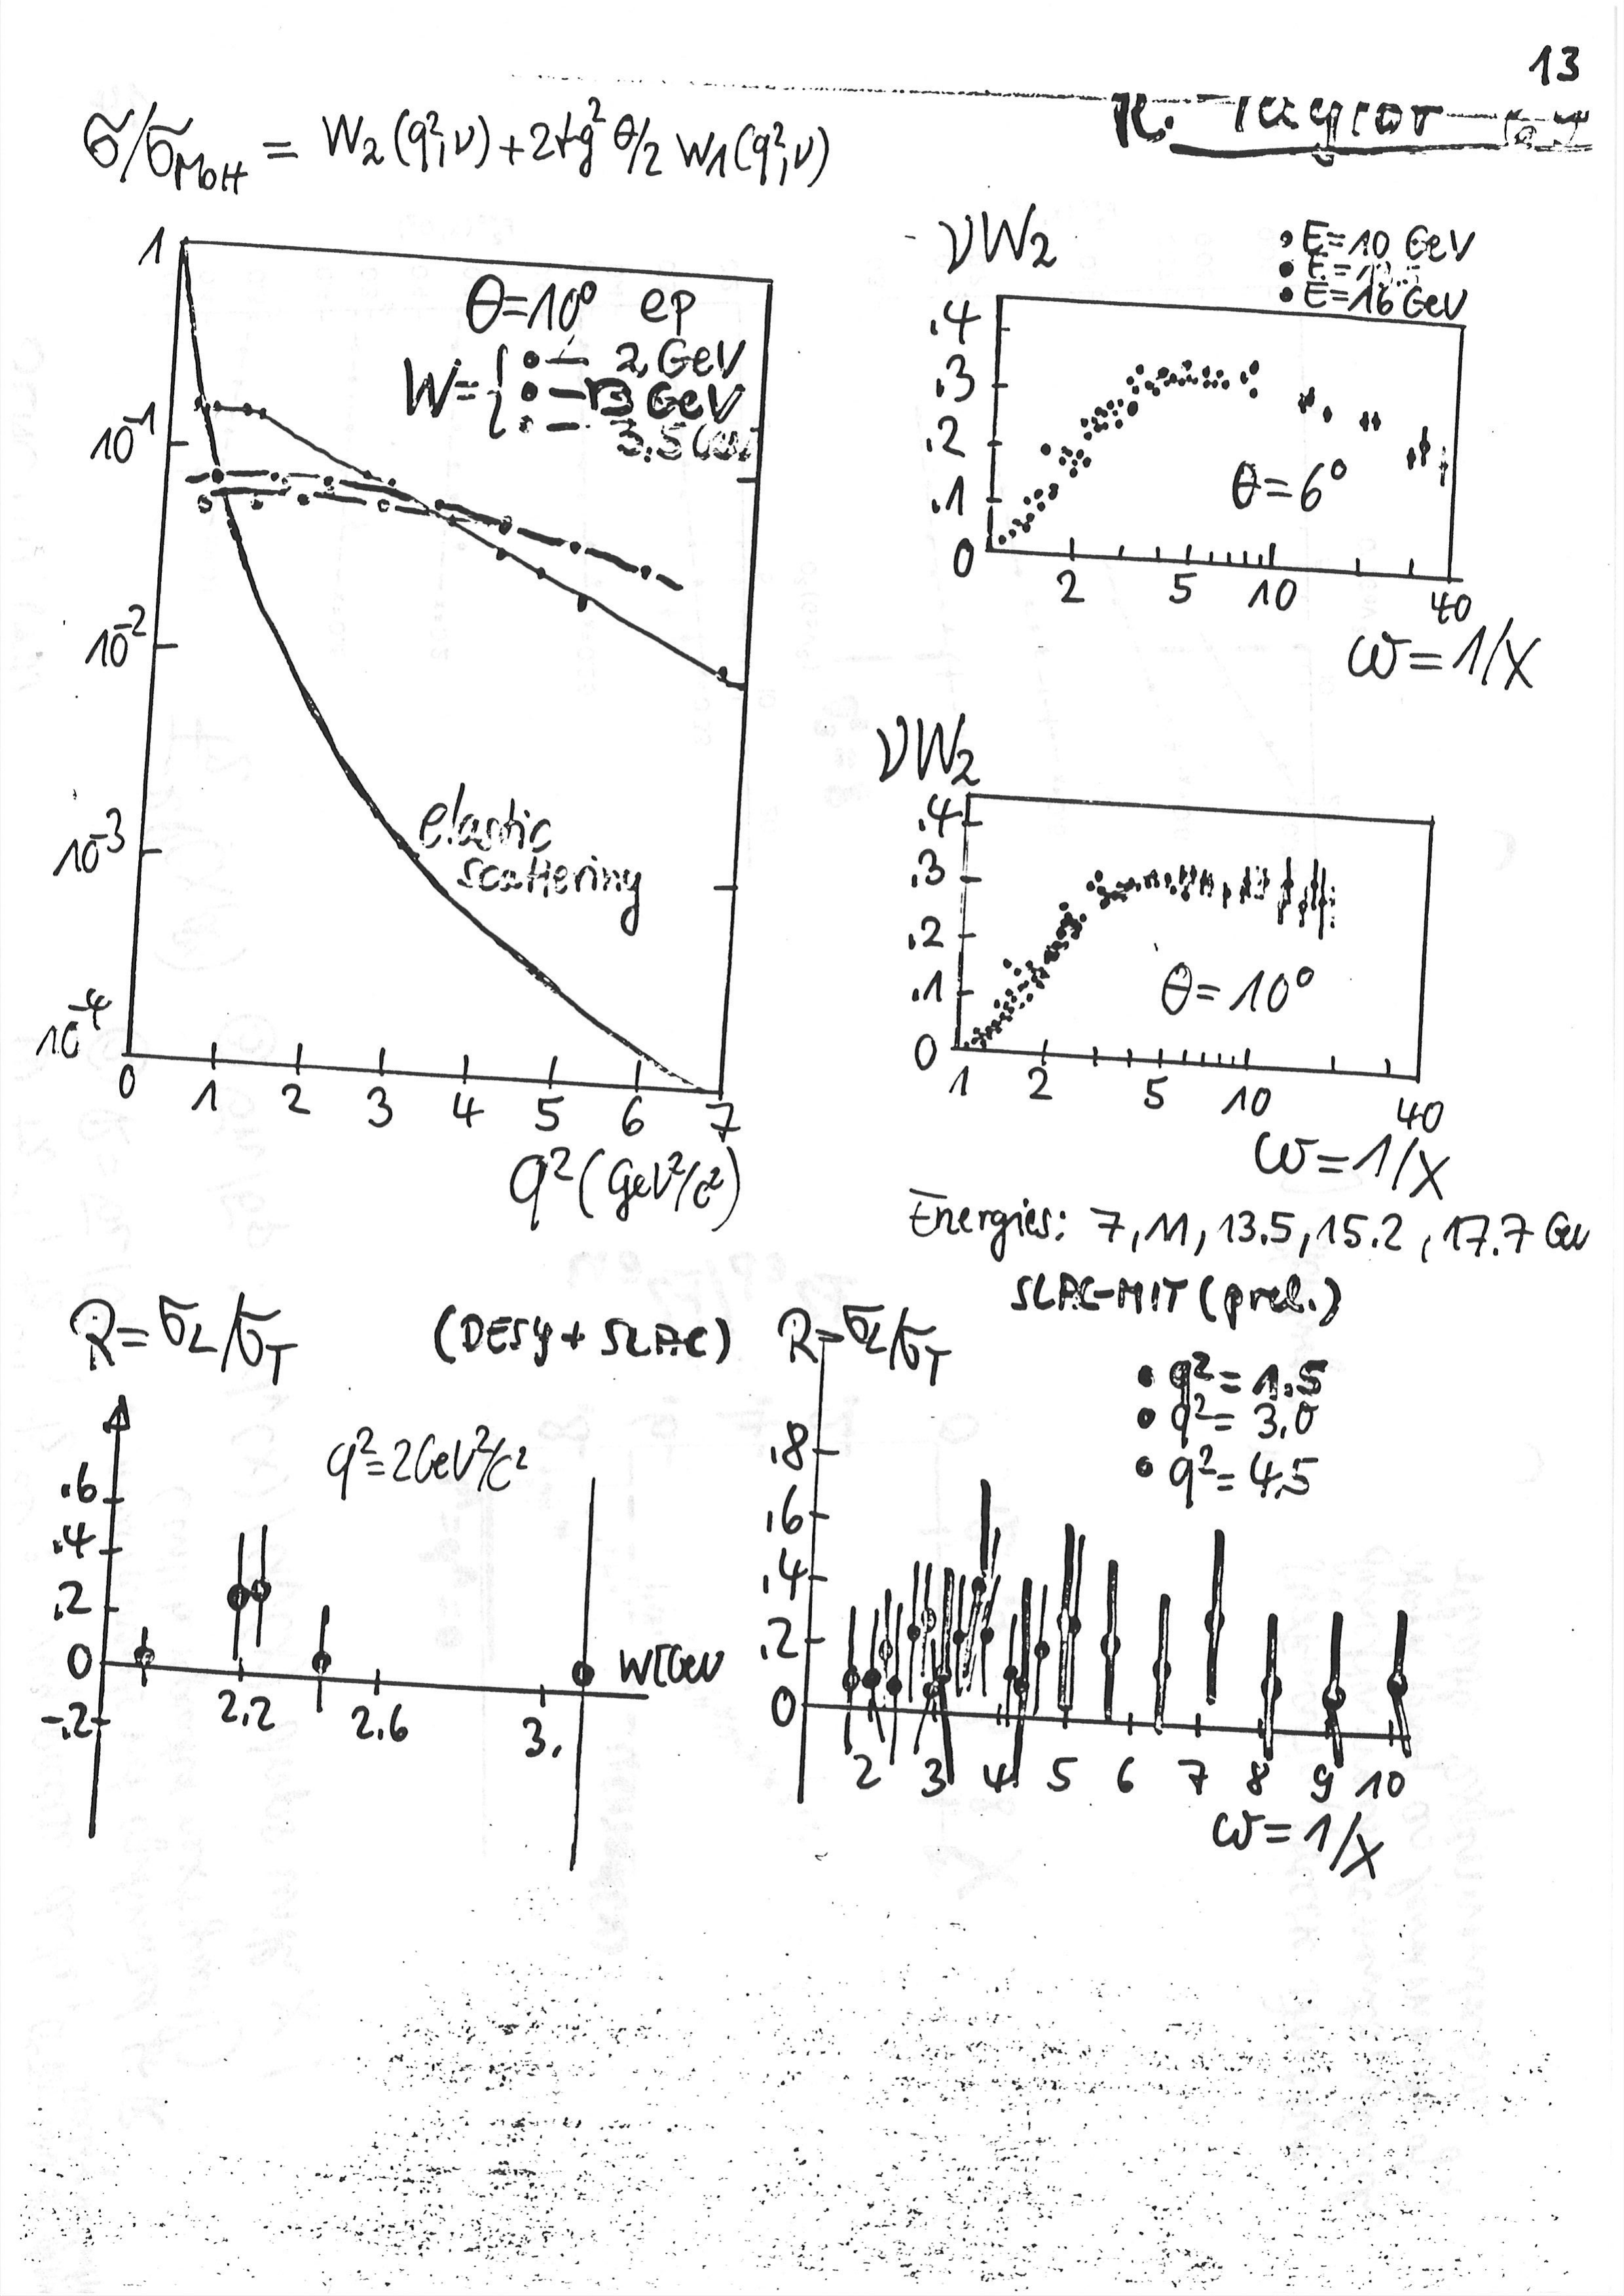 13
R. Taylor
σ/σ_MOTT = W₂(q²,ν)+2tg²θ/2 W₁(q²,ν)
1
10⁻¹
10⁻²
10⁻³
10⁻⁴
θ=10° ep
W= 2 GeV
3 GeV
3.5 GeV
elastic
scattering
0 1 2 3 4 5 6 7
q² (GeV²/c²)
νW₂
E=10 GeV
E=
E=16 GeV
.4
.3
.2
.1
0
θ=6°
2 5 10 40
ω=1/x
νW₂
.4
.3
.2
.1
0
θ=10°
1 2 5 10 40
ω=1/x
Energies: 7, 11, 13.5, 15.2, 17.7 GeV
SLAC-MIT (prel.)
R=σL/σT (DESY+SLAC)
q²=2GeV²/c²
.6
.4
.2
0
-.2
2.2 2.6 3.
W[GeV
R=σL/σT
q²=1.5
q²=3.0
q²=4.5
.8
.6
.4
.2
0
2 3 4 5 6 7 8 9 10
ω=1/x